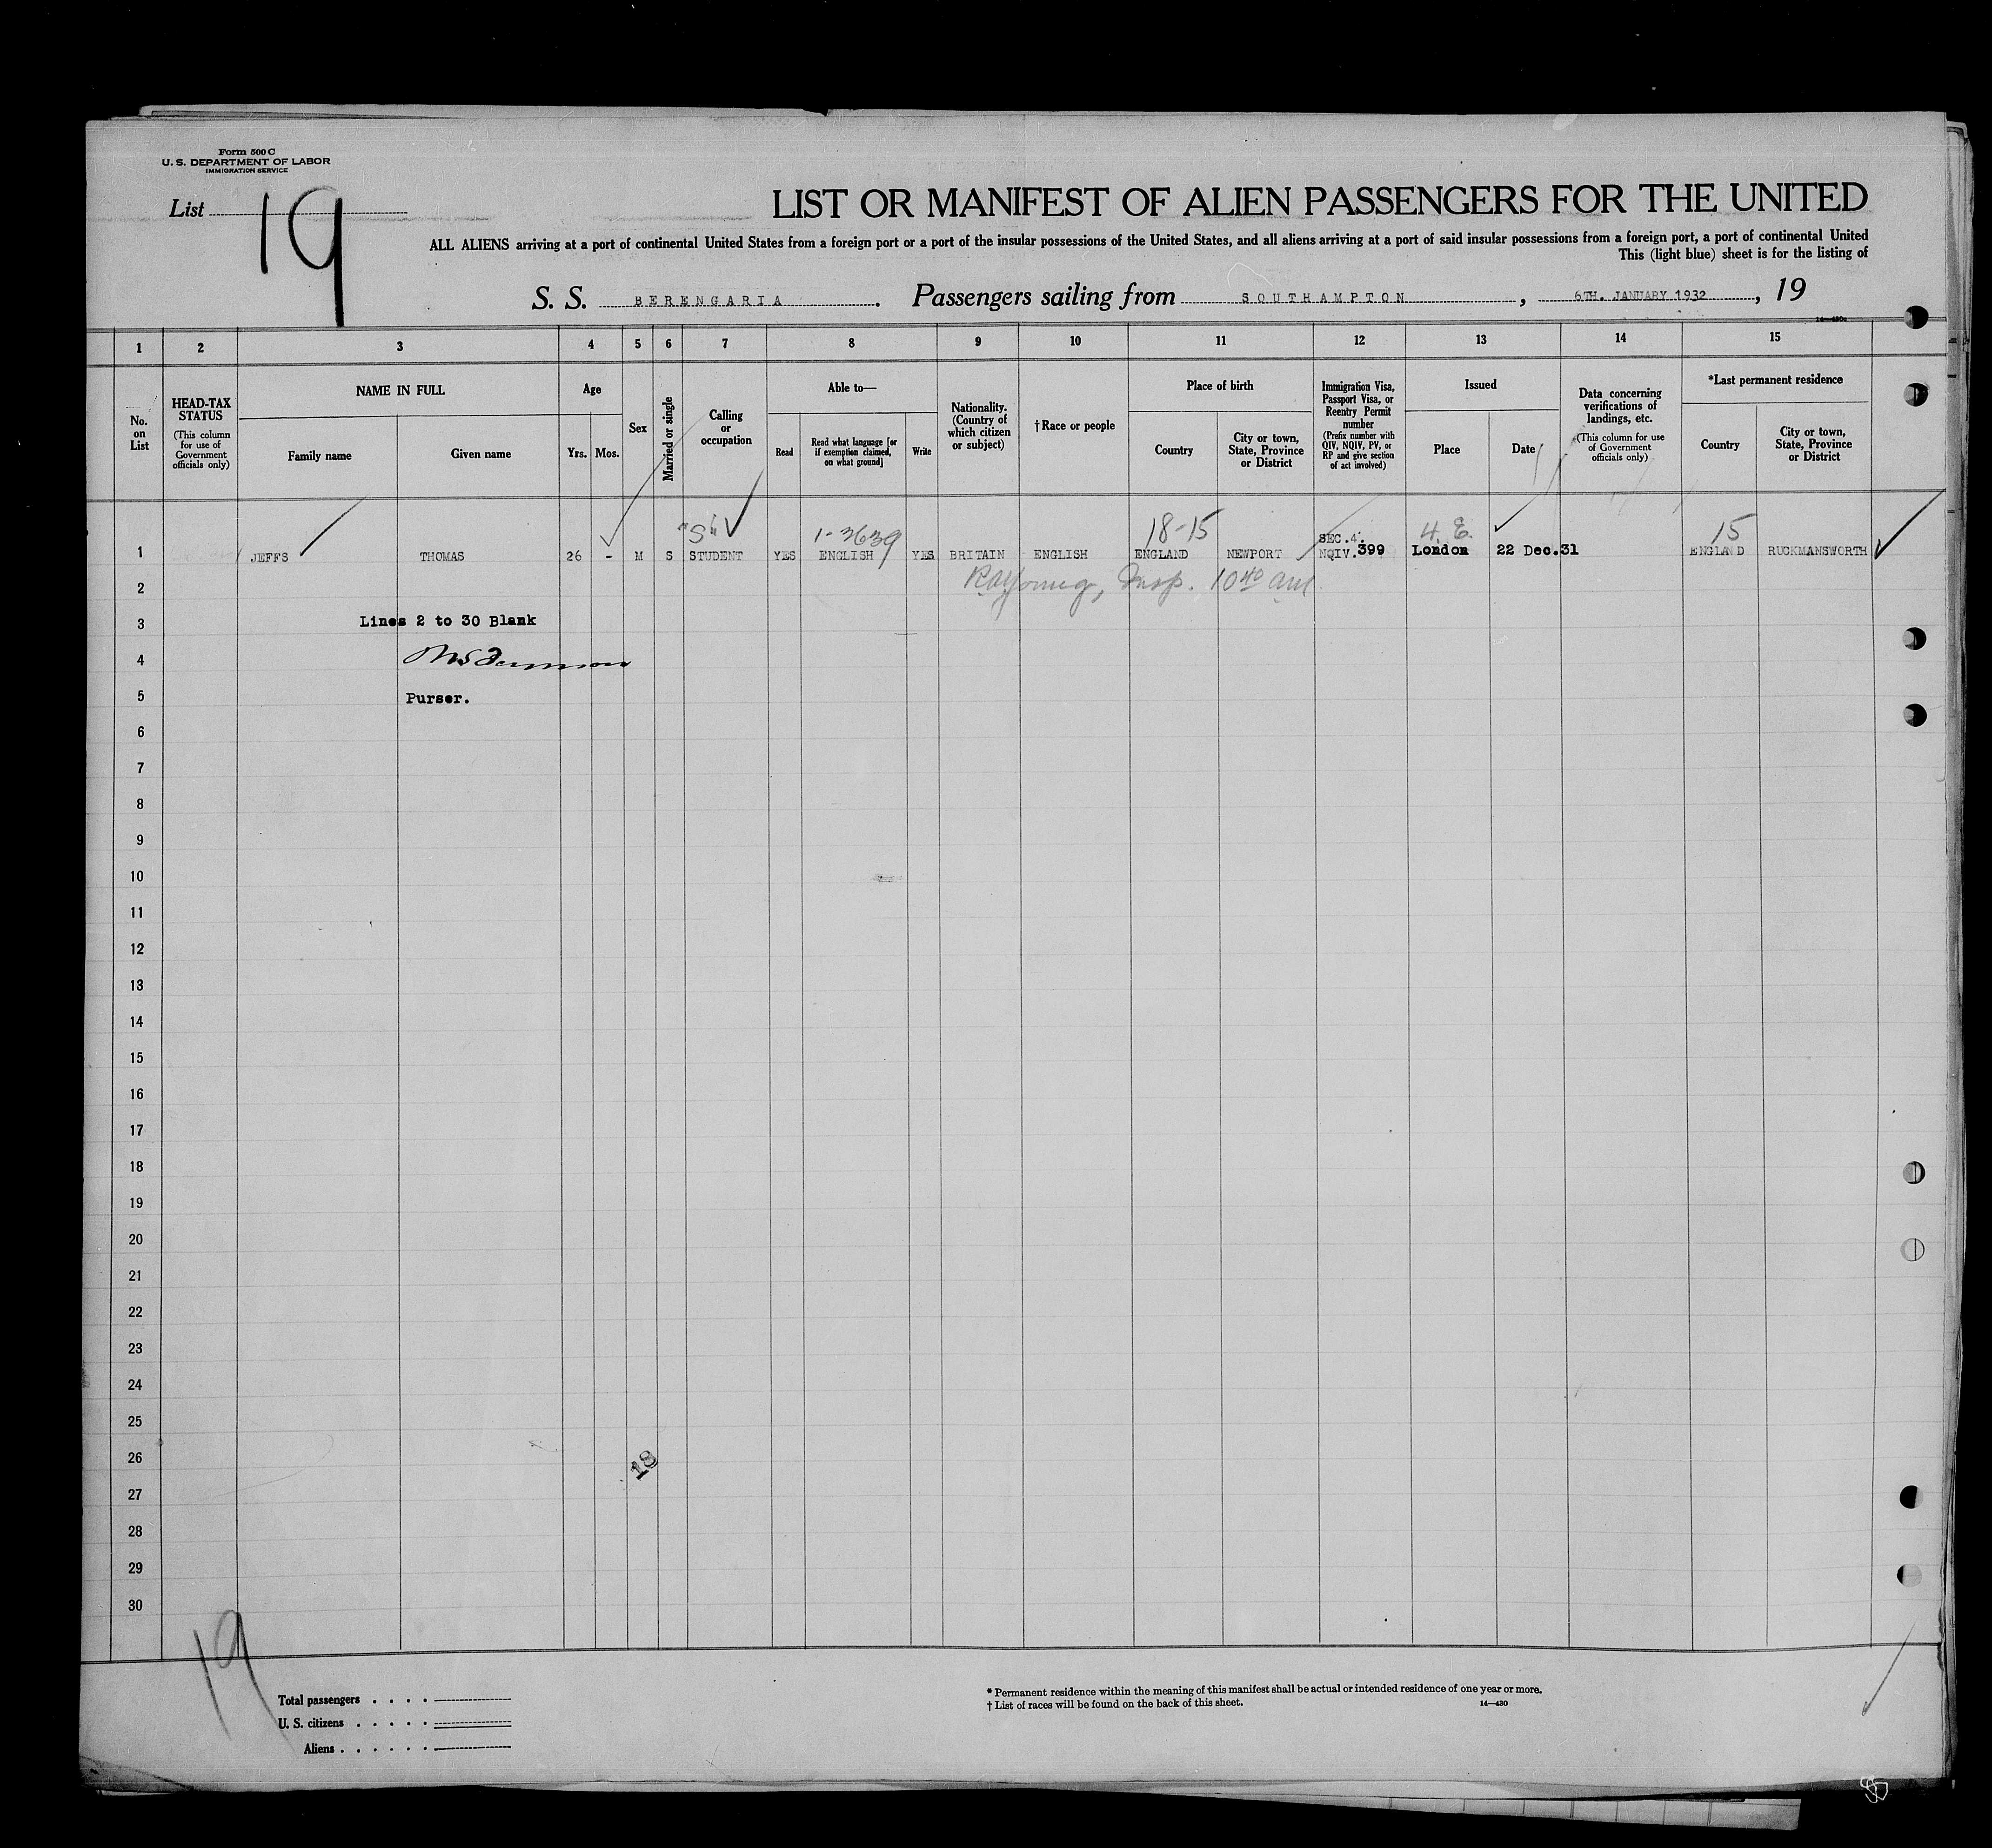 Form 500 C
U. S. DEPARTMENT OF LABOR
IMMIGRATION SERVICE
List 19
LIST OR MANIFEST OF ALIEN PASSENGERS FOR THE UNITED
ALL ALIENS arriving at a port of continental United States from a foreign port or a port of the insular possessions of the United States, and all aliens arriving at a port of said insular possessions from a foreign port, a port of continental United
This (light blue) sheet is for the listing of
S. S. BERENGARIA. Passengers sailing from SOUTHAMPTON, 6TH. JANUARY 1932, 19
14—430
1 2 3 4 5 6 7 8 9 10 11 12 13 14 15
No. on List
HEAD-TAX STATUS
(This column for use of Government officials only)
NAME IN FULL
Family name
Given name
Age
Yrs. Mos.
Sex
Married or single
Calling or occupation
Able to—
Read
Read what language [or if exemption claimed, on what ground]
Write
Nationality. (Country of which citizen or subject)
†Race or people
Place of birth
Country
City or town, State, Province or District
Immigration Visa, Passport Visa, or Reentry Permit number
(Prefix number with QIV, NQIV, PV, or RP and give section of act involved)
Issued
Place
Date
Data concerning verifications of landings, etc.
(This column for use of Government officials only)
*Last permanent residence
Country
City or town, State, Province or District
"S" 1-3639 18-15 SEC.4. 4. E. 15
1 JEFFS THOMAS 26 - M S STUDENT YES ENGLISH YES BRITAIN ENGLISH ENGLAND NEWPORT NQIV.399 London 22 Dec.31 ENGLAND RUCKMANSWORTH
2 Young, Insp. 10 40 am
3 Lines 2 to 30 Blank
4
5 Purser.
6
7
8
9
10
11
12
13
14
15
16
17
18
19
20
21
22
23
24
25
26 18
27
28
29
30
19
Total passengers . . . .
U. S. citizens . . . . .
Aliens . . . . . .
* Permanent residence within the meaning of this manifest shall be actual or intended residence of one year or more.
† List of races will be found on the back of this sheet.
14—430